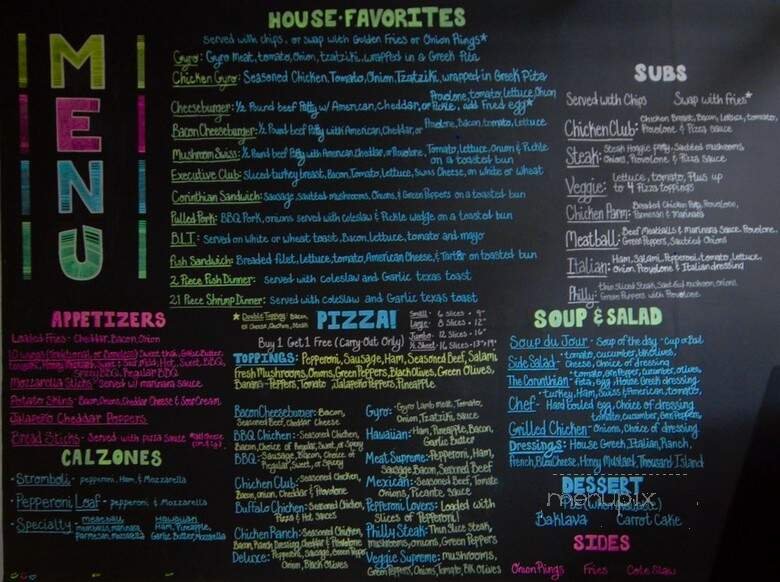 MENU
HOUSE·FAVORITES
Served with chips, or swap with Golden Fries or Onion Rings*
Gyro: Gyro Meat, tomato, Onion, tzatziki, wrapped in a Greek Pita
Chicken Gyro: Seasoned Chicken, Tomato, Onion, Tzatziki, wrapped in Greek Pita
Cheeseburger: 1/2 Pound beef Patty w/ American, Cheddar, or Provolone, tomato, lettuce, Onion & Pickle, add Fried egg*
Bacon Cheeseburger: 1/2 Pound beef Patty with American, Cheddar, or Provolone, Bacon, tomato, Lettuce
Mushroom Swiss: 1/2 Pound beef Patty with American, Cheddar, or Provolone, Tomato, Lettuce, Onion & Pickle
on a toasted bun
Executive Club: Sliced turkey breast, Bacon, Tomato, Lettuce, Swiss Cheese, on White or Wheat
Corinthian Sandwich: Sausage, sautéed mushrooms, Onions, & Green Peppers on a toasted bun
Pulled Pork: BBQ Pork, onions served with coleslaw & Pickle wedge on a toasted bun
B.L.T: Served on white or wheat toast, Bacon, Lettuce, tomato and mayo
Fish Sandwich: Breaded filet, Lettuce, tomato, American Cheese, & Tartar on toasted bun
2 Piece Fish Dinner: Served with coleslaw and Garlic texas toast
21 Piece Shrimp Dinner: Served with coleslaw and Garlic texas toast
SUBS
Served with Chips Swap with Fries*
Chicken Club: Chicken Breast, Bacon, Lettuce, tomato,
Provolone & Pizza sauce
Steak: Steak Hoagie patty, Sautéed mushrooms,
Onions, Provolone & Pizza sauce
Veggie: Lettuce, tomato, Plus up
to 4 Pizza toppings
Chicken Parm: Breaded Chicken Patty, Provolone,
Parmesan & Marinara
Meatball: Beef Meatballs & Marinara Sauce, Provolone,
Green Peppers, Sautéed Onions
Italian: Ham, Salami, Pepperoni, tomato, Lettuce,
Onion, Provolone & Italian dressing
Philly: thin Sliced Steak, Sautéed mushroom, onions,
Green Peppers with Provolone
APPETIZERS
Loaded Fries: Cheddar, Bacon, Onion
10 Wings (Traditional or Boneless)
Mozzarella Sticks: Served w/ marinara sauce
Potato Skins: Bacon, Onions, Cheddar Cheese & Sour Cream
Jalapeño Cheddar Poppers
Bread Sticks: Served with pizza sauce
CALZONES
·Stromboli - pepperoni, Ham, & Mozzarella
·Pepperoni Loaf - pepperoni & Mozzarella
·Specialty
Meatball
meatballs, marinara
parmesan, mozzarella
Hawaiian
Ham, Pineapple,
Garlic Butter, Mozzarella
* Double Topping: Bacon,
PIZZA!
Small - 6 Slices - 9"
Large - 8 Slices - 12"
Jumbo - 12 Slices - 16"
Buy 1 Get 1 Free (Carry Out Only)
TOPPINGS: Pepperoni, Sausage, Ham, Seasoned Beef, Salami
Fresh Mushrooms, Onions, Green Peppers, Black Olives, Green Olives,
Banana-Peppers, Tomato, Jalapeño Peppers, Pineapple
Bacon Cheeseburger: Bacon,
Seasoned Beef, Cheddar Cheese
BBQ Chicken: Seasoned Chicken,
Bacon, Choice of Regular, Sweet, or Spicy
BBQ: Sausage, Bacon, Choice of
Regular, Sweet, or Spicy
Chicken Club: Seasoned Chicken,
Bacon, onion, Cheddar & Provolone
Buffalo Chicken: Seasoned Chicken,
Pizza & Hot Sauces
Chicken Ranch: Seasoned Chicken,
Bacon, Ranch Dressing, Cheddar & Provolone
Deluxe: Pepperoni, Sausage, Green Pepper
Onion, Black Olives
Gyro: Gyro Lamb Meat, Tomato,
Onion, Tzatziki Sauce
Hawaiian: Ham, Pineapple, Bacon,
Garlic Butter
Meat Supreme: Pepperoni, Ham,
Sausage, Bacon, Seasoned Beef
Mexican: Seasoned Beef, Tomato
Onions, Picante Sauce
Pepperoni Lovers: Loaded with
Slices of Pepperoni!
Philly Steak: Thin Slice Steak,
mushrooms, onions, Green Peppers
Veggie Supreme: mushrooms,
Green Peppers, Onions, Tomato, Blk Olives
SOUP & SALAD
Soup du Jour: Soup of the day - Cup or Bowl
Side Salad: tomato, cucumber, blk olives,
Cheese, Choice of dressing
The Corinthian: tomato, Gre. Pepper, cucumber, olives,
Feta, egg, House Greek dressing
Chef: turkey, Ham, Swiss & American, tomato,
Hard Boiled egg, Choice of dressing
Grilled Chicken: tomato, cucumber, Gre. Peppers,
Onions, Choice of dressing
Dressings: House Greek, Italian, Ranch,
French, Blue Cheese, Honey Mustard, Thousand Island
DESSERT
menupix
Baklava Carrot Cake
SIDES
Onion Rings Fries Cole Slaw